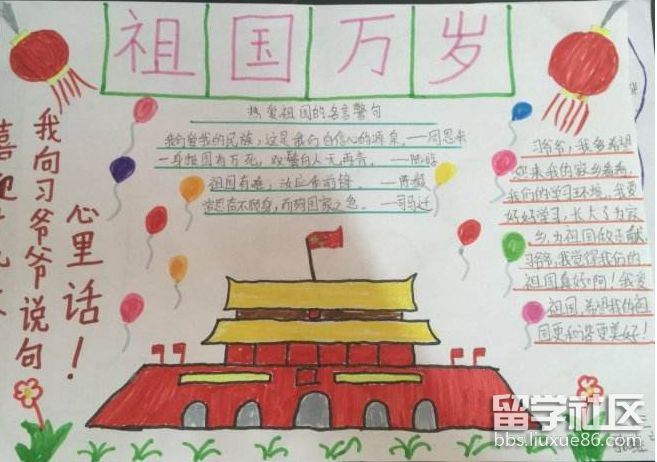 祖国万岁
热爱祖国的名言警句
我们爱我的民族，这是我们自信心的源泉。——周恩来
一身报国有万死，双鬓向人无再青。——陆游
祖国有难，汝应作前锋。——陈毅
常思奋不顾身，而殉国家之急。——司马迁
习爷爷，我多希望
您来我的家乡看看，
我们的学习环境，我要
好好学习，长大了为家
乡，为祖国做贡献，
习爷爷，我觉得我们的
祖国真好啊！我爱
祖国，希望我的祖
国更和谐更美好！
我向习爷爷说句
心里话！
喜迎十九大
留学社区
bbs.liuxue86.com